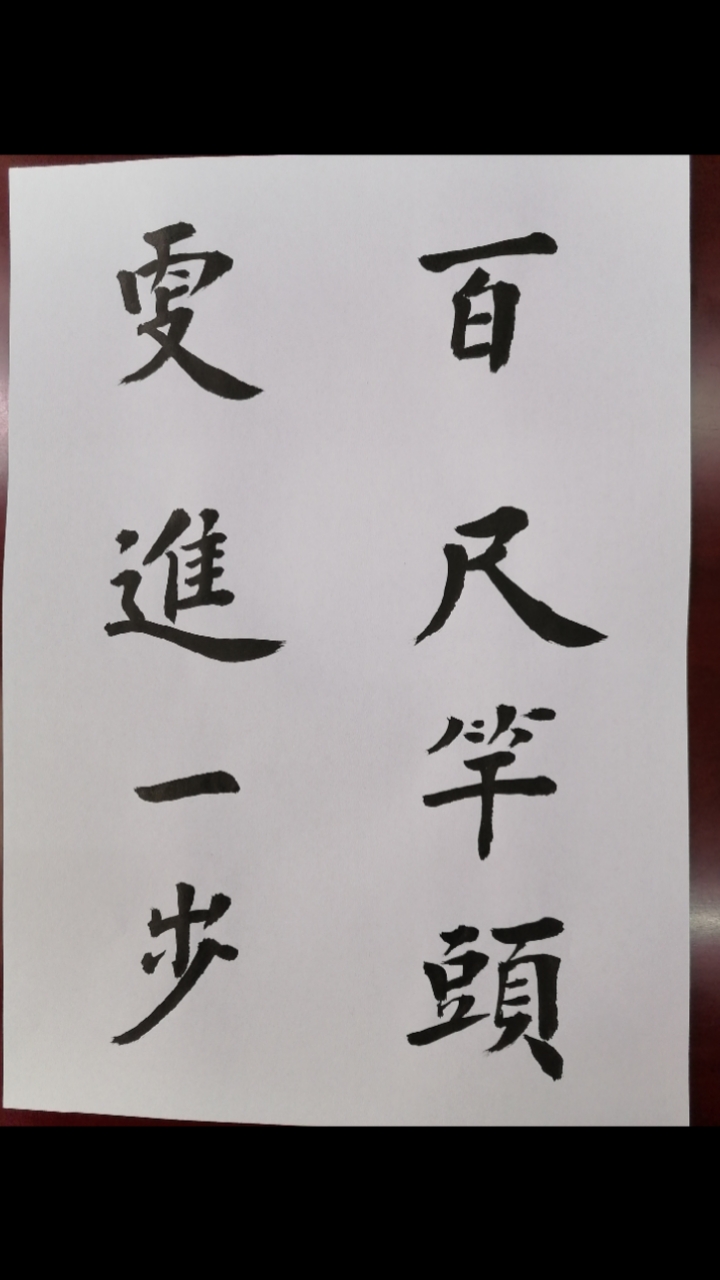 百尺竿頭
雯進一步